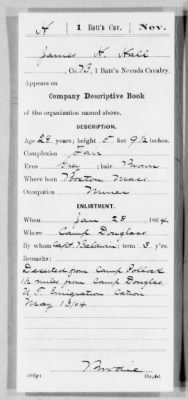 H | 1 Batt'n Cav. | Nev.
James H. Hall
, Co. B, 1 Batt'n Nevada Cavalry.
Appears on
Company Descriptive Book
of the organization named above.
DESCRIPTION.
Age 28 years; height 5 feet 9½ inches.
Complexion Fair
Eyes Grey ; hair Brown
Where born Boston, Mass.
Occupation Miner
ENLISTMENT.
When Jan 28 , 1864.
Where Camp Douglas
By whom Capt. Baldwin ; term 3 y'rs.
Remarks:
Deserted from Camp Pollock
1½ miles from Camp Douglas,
U.T. Emigration Cañon
May 13/64
Copyist.